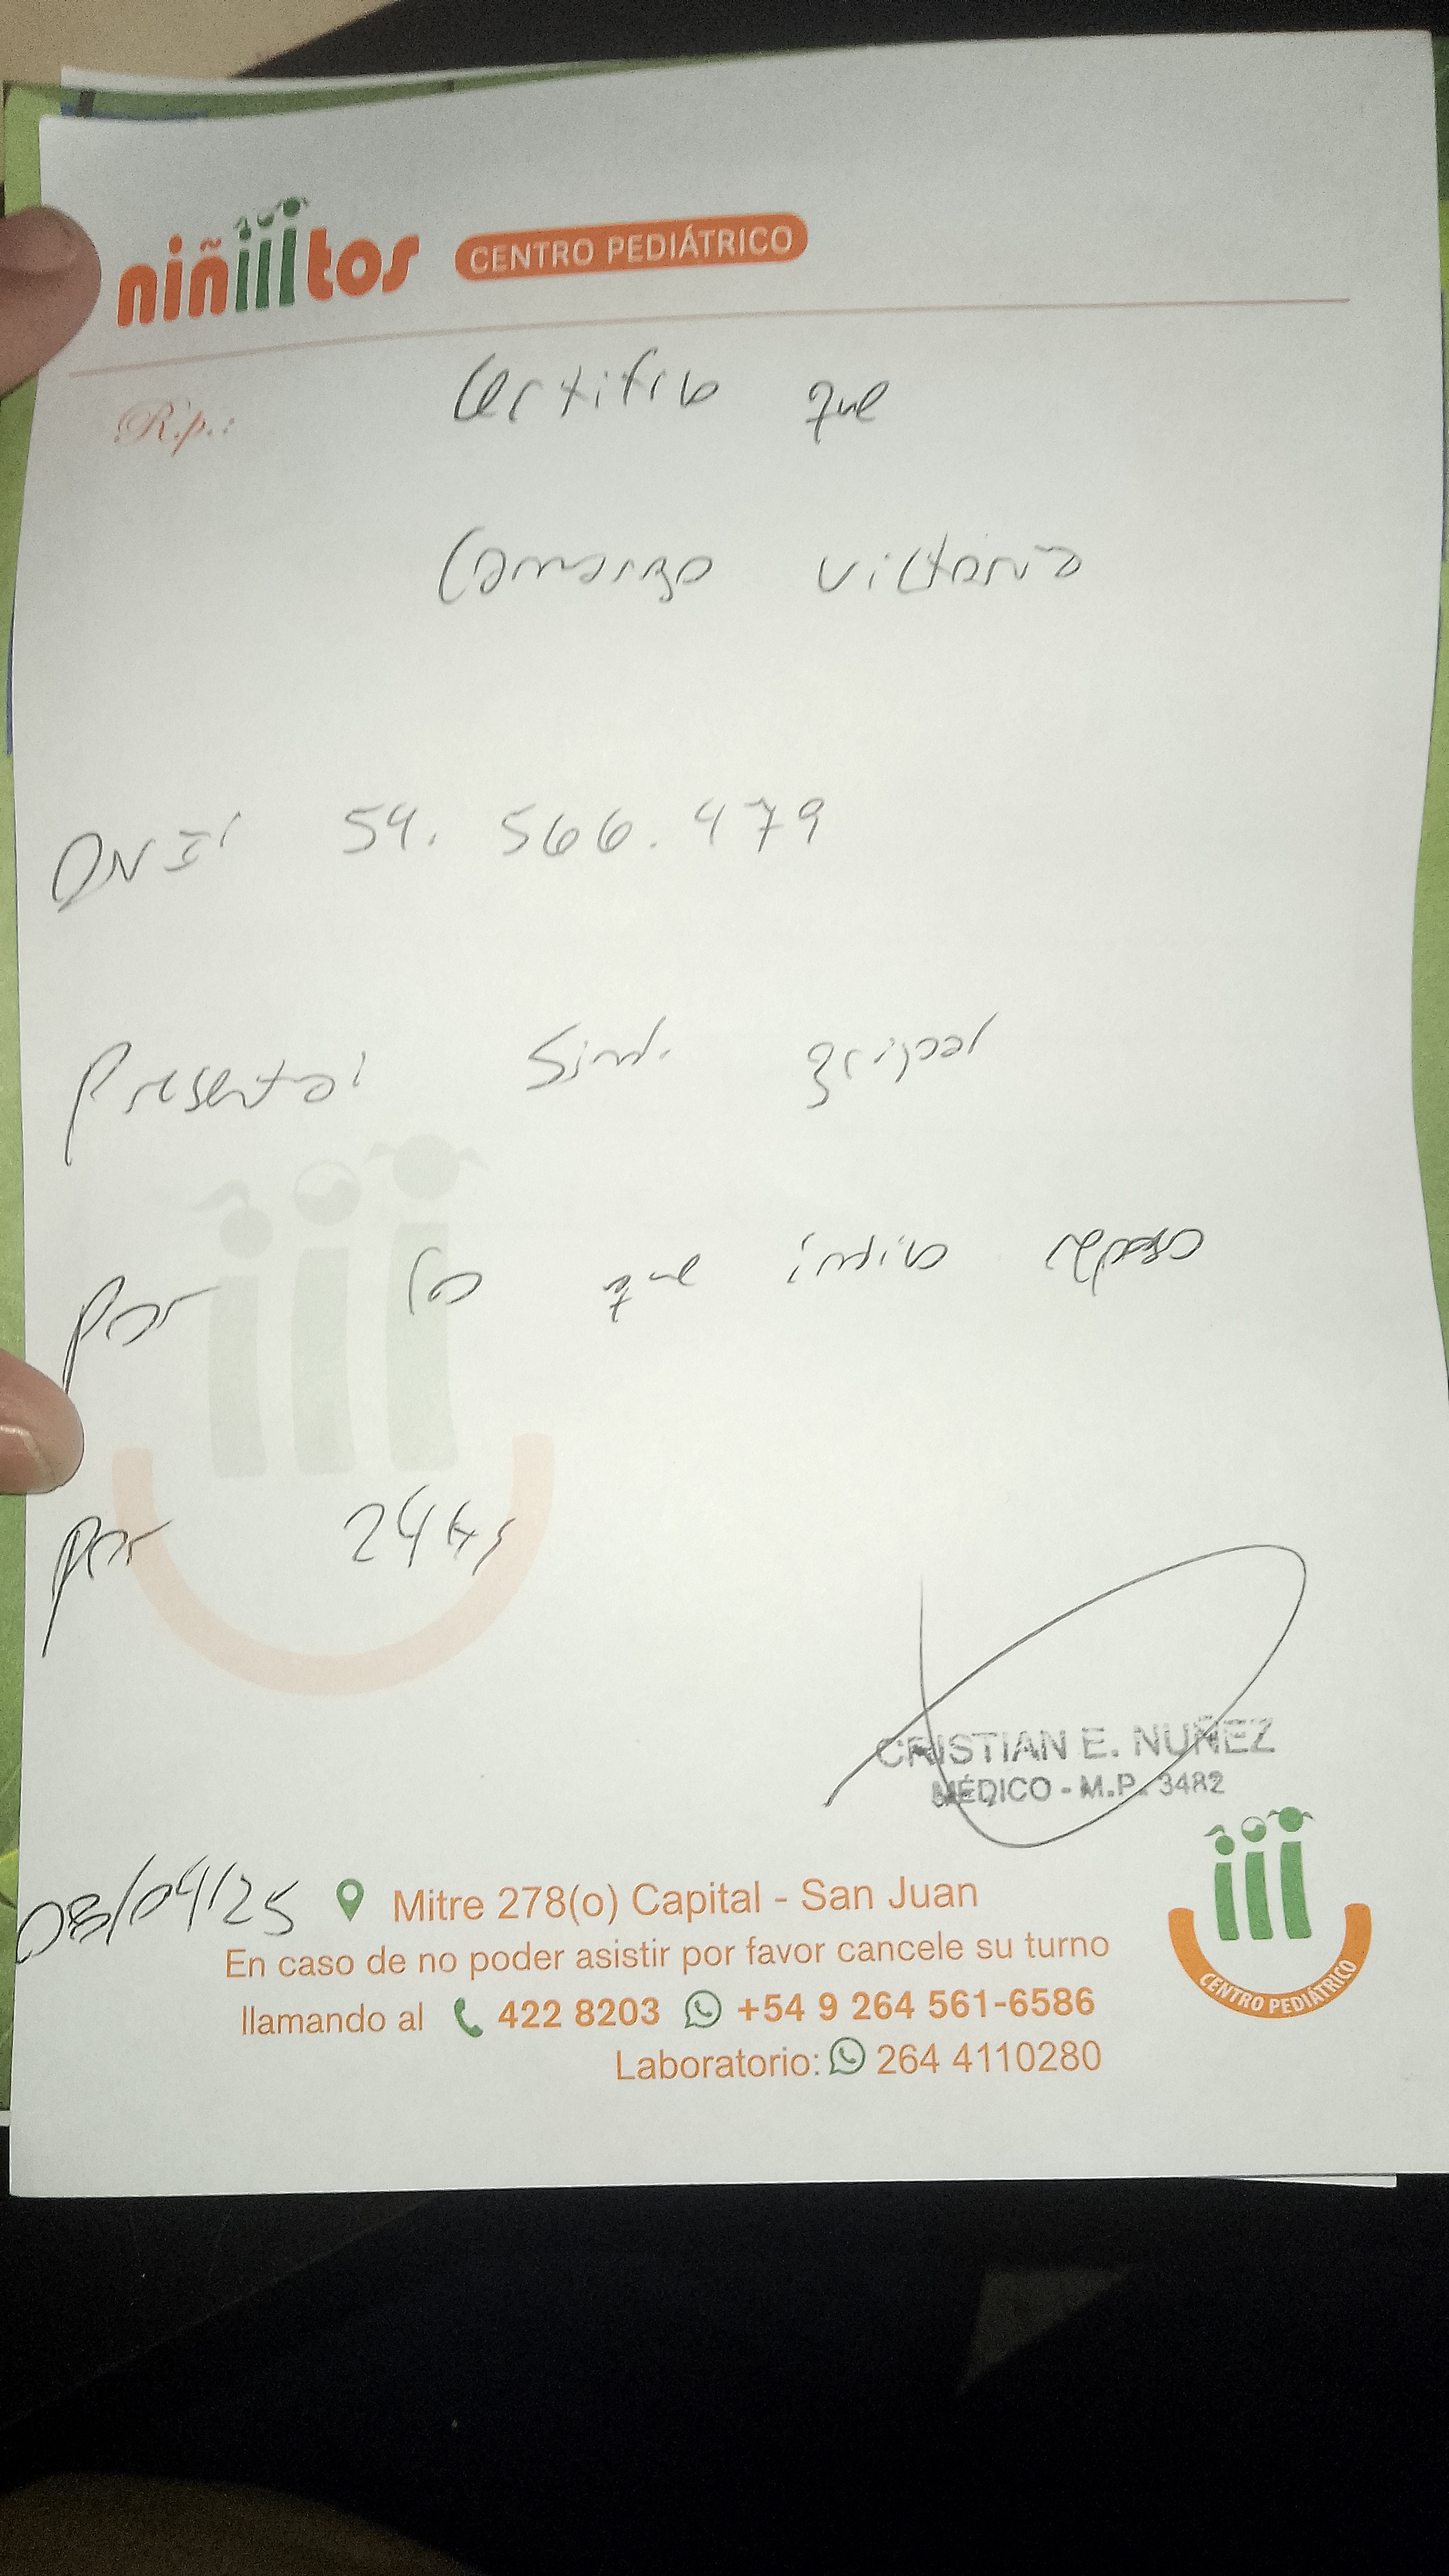 niñiiitos CENTRO PEDIÁTRICO
R.p.:
Certifico que
Camargo Victoria
DNI: 54.566.479
Presenta: Sind. gripal
por lo que indico reposo
por 24hs
CRISTIAN E. NUÑEZ
MÉDICO - M.P. 3482
08/04/25
Mitre 278(o) Capital - San Juan
En caso de no poder asistir por favor cancele su turno
llamando al 422 8203 +54 9 264 561-6586
Laboratorio: 264 4110280
CENTRO PEDIÁTRICO